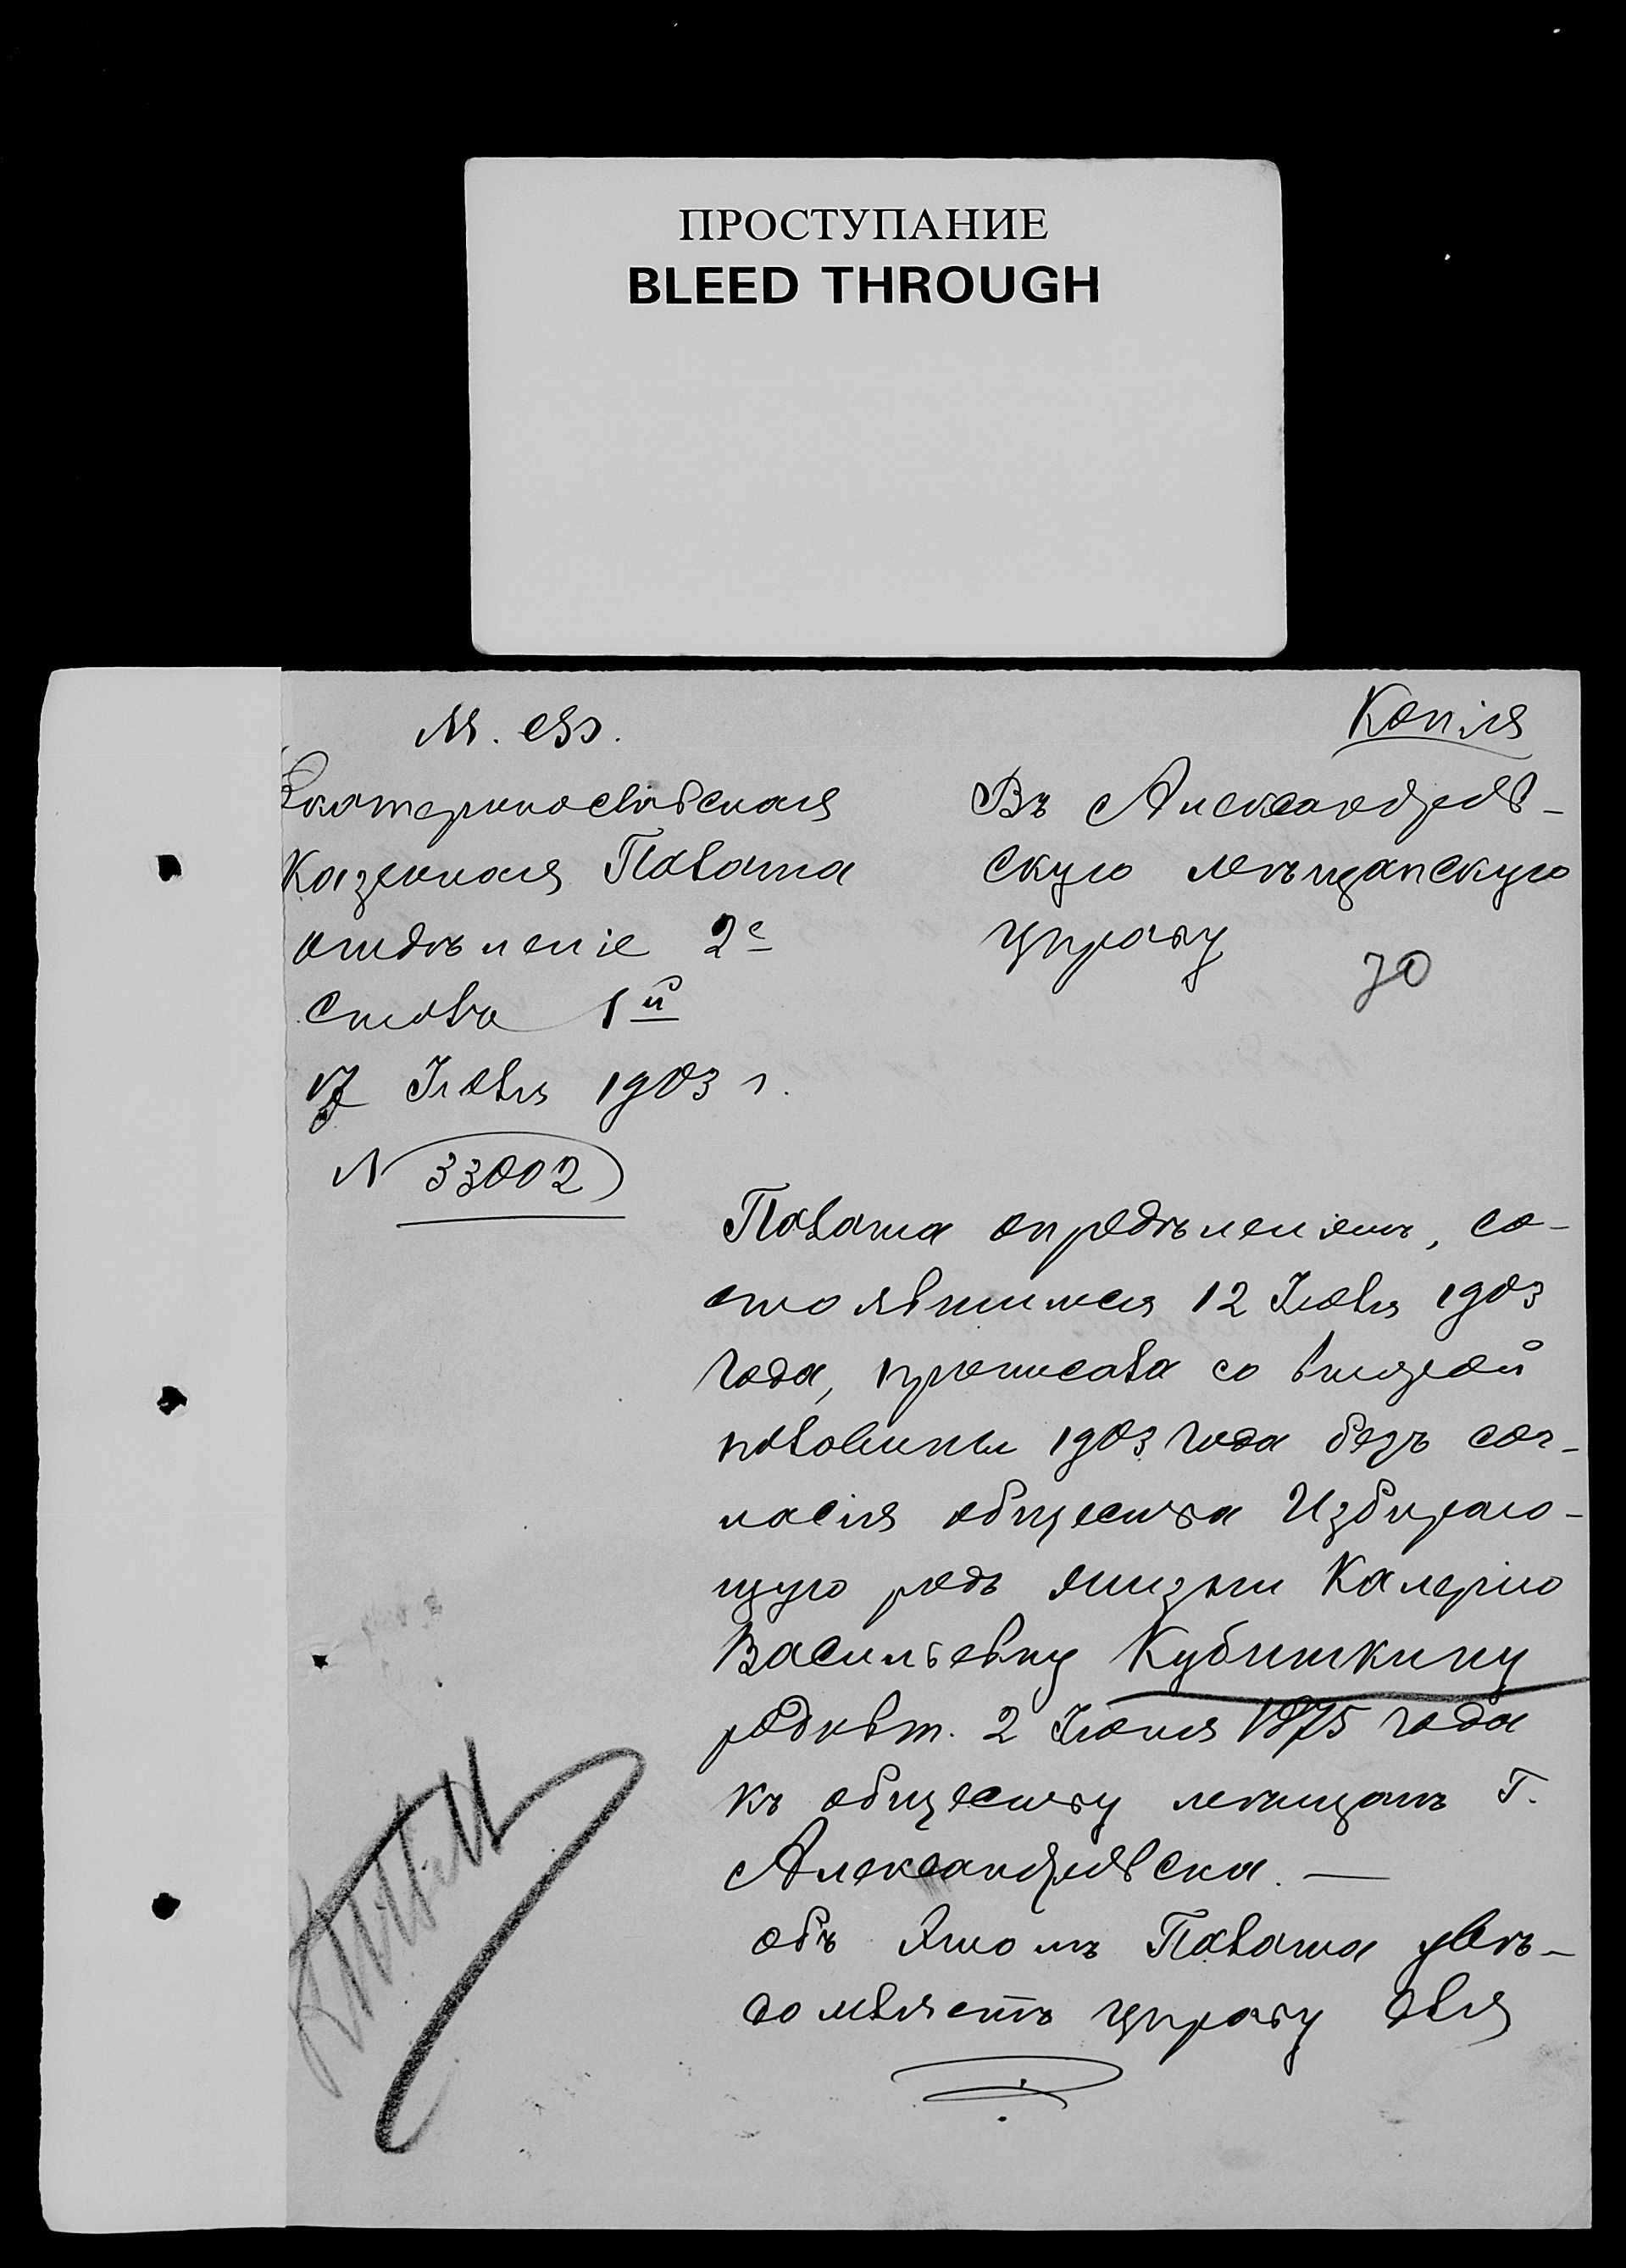 ПРОСТУПАНИЕ
BLEED THROUGH
Копія
М.
Екатеринославская
Казенная Палата
отдѣленіе 2е
Стола 1й
17 Іюля 1903 г.
N 33002
Въ Александров-
скую мѣщанскую
управу
70
Палата опредѣленіемъ, со-
стоявшимся 12 Іюля 1903
года, приписала со второй
половины 1903 года безъ сог-
ласія общества Избираю-
щую родъ жизни Калерію
Васильевну Кубышкину
родивш. 2 Іюня 1875 года
къ обществу мѣщанъ г.
Александровска. —
объ этомъ Палата увѣ-
домляетъ управу для